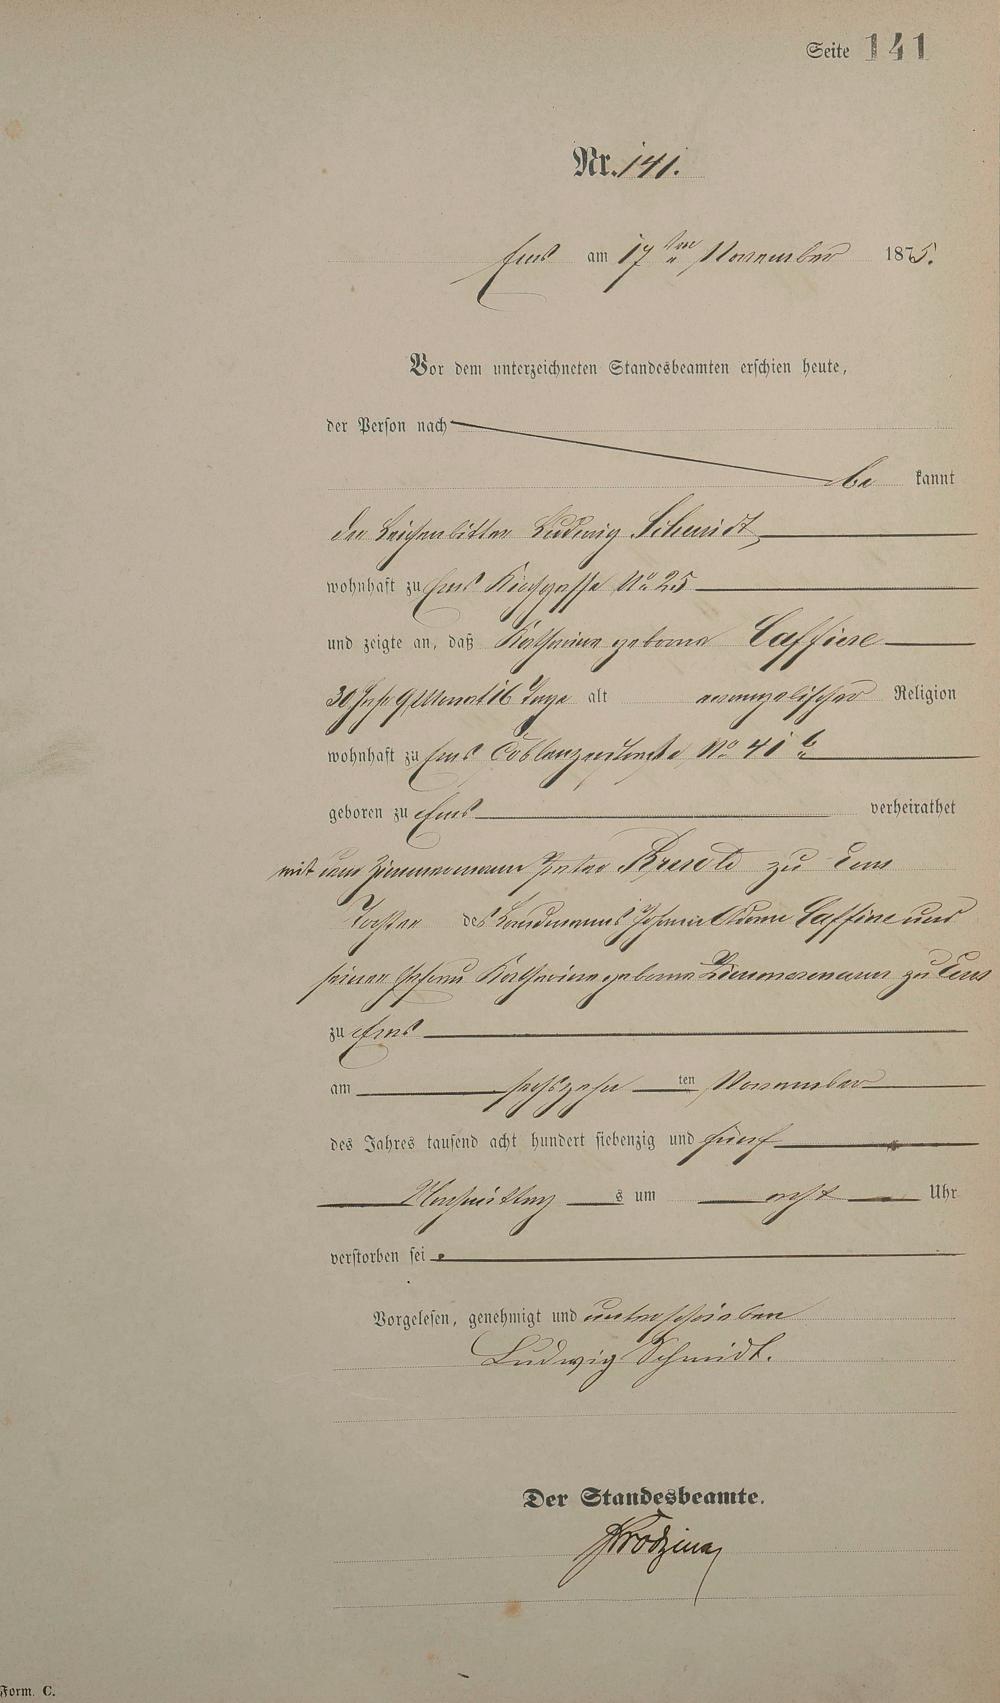 Seite 141
Nr. 141.
Ems am 17ten November 1875.
Vor dem unterzeichneten Standesbeamten erschien heute,
der Person nach
be kannt
der Leichenbitter Ludwig Schmidt,
wohnhaft zu Ems Kirchgasse No 25
und zeigte an, daß Katharina geborene Caffiere
30 Jahr 9 Monat 16 Tage alt evangelischer Religion
wohnhaft zu Ems Coblenzerstraße, No 41 b
geboren zu Ems verheirathet
mit dem Zimmermann Peter zu Ems
Tochter des Landmanns Johann Adam Caffiere und
seiner Ehefrau Katharina geborene Zimmermann zu Ems
zu Ems
am sechszehn ten November
des Jahres tausend acht hundert siebenzig und fünf
Nachmittag s um acht Uhr
verstorben sei.
Vorgelesen, genehmigt und unterschrieben
Ludwig Schmidt.
Der Standesbeamte.
Form. C.